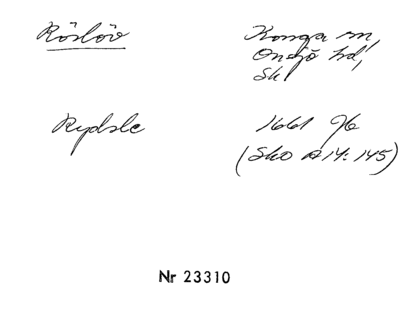 Röslöv
Konga sn,
Onsjö hd,
Sk
Rydsle
1661 Jb
(Sko A 14: 145)
Nr 23310